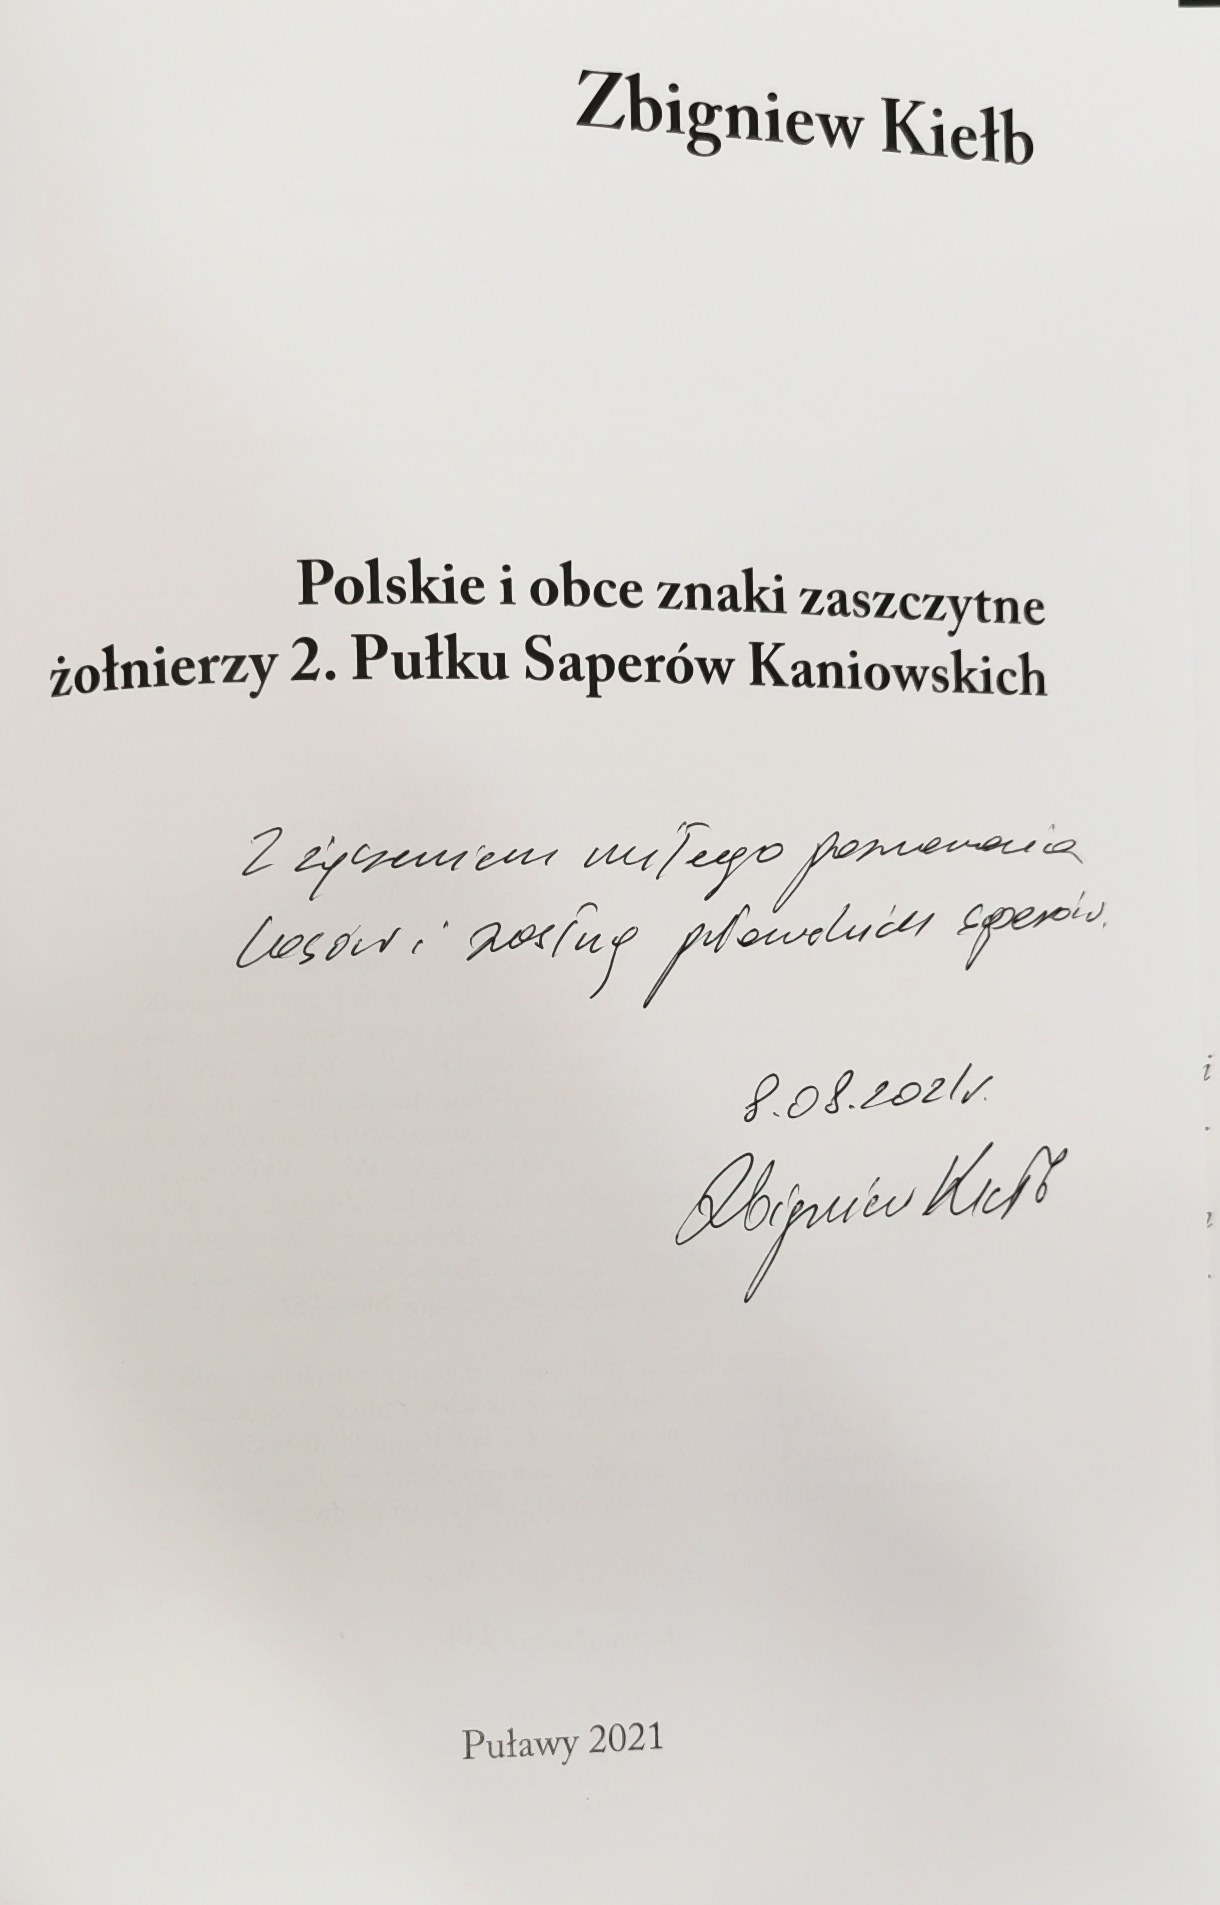 Zbigniew Kiełb
Polskie i obce znaki zaszczytne
żołnierzy 2. Pułku Saperów Kaniowskich
Z życzeniem miłego poznawania
losów i zasług puławskich saperów.
8.08.2021r.
Zbigniew Kiełb
Puławy 2021